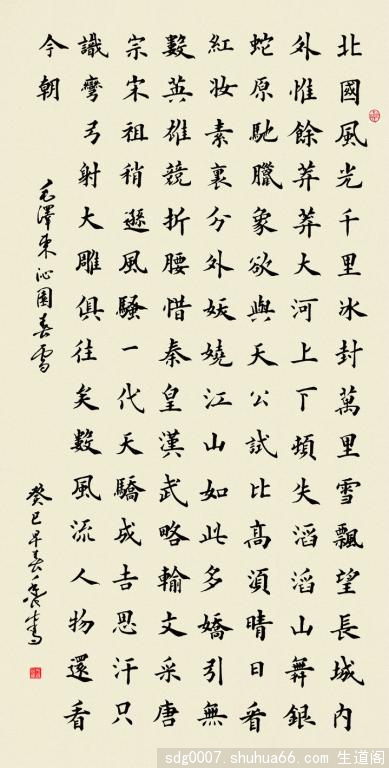 北國風光千里冰封萬里雪飄望長城内
外惟餘莽莽大河上下頓失滔滔山舞銀
蛇原馳臘象欲與天公試比高須晴日看
紅妝素裹分外妖嬈江山如此多嬌引無
數英雄競折腰惜秦皇漢武略輸文采唐
宗宋祖稍遜風騷一代天驕成吉思汗只
識彎弓射大雕俱往矣數風流人物還看
今朝
毛澤東沁園春雪
癸巳早春書
sdg0007.shuhua66.com 生道阁